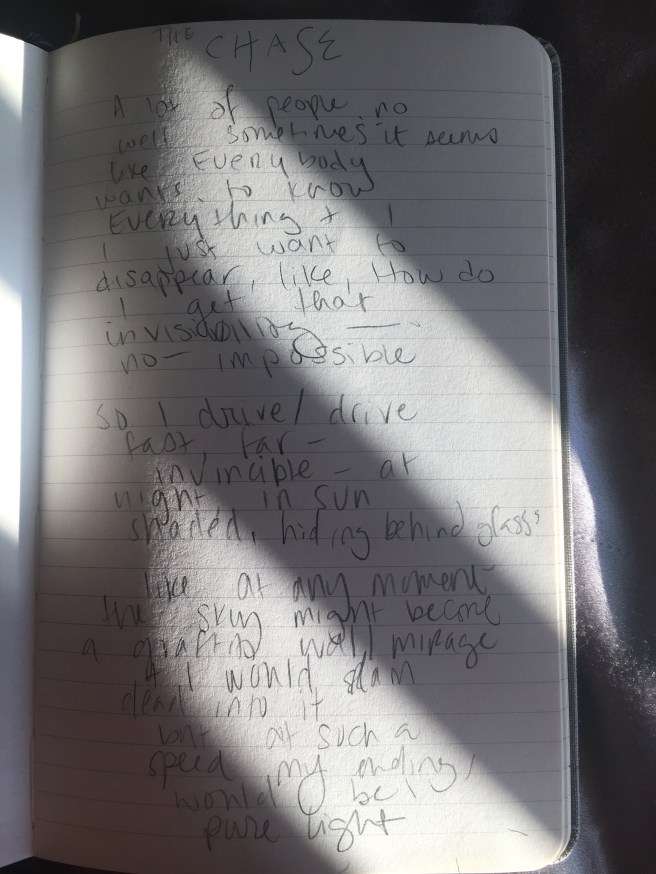 THE CHASE
A lot of people no
well sometimes it seems
like Everybody
wants to know
Everything + I
I just want to
disappear, like, How do
I get that
invisibility —
no — impossible
so I drive / drive
fast, far –
invincible – at
night, in sun
shaded, hiding behind glass
like at any moment
the sky might become
a graffiti wall mirage
& I would slam
dead into it
but at such a
speed my ending,
would be
pure light